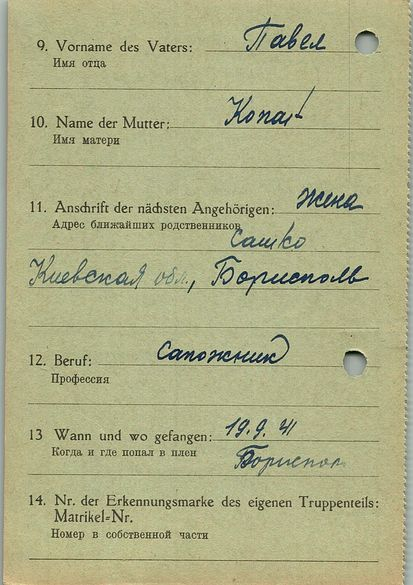 9. Vorname des Vaters: Павел
Имя отца
10. Name der Mutter:
Имя матери
11. Anschrift der nächsten Angehörigen: жена
Адрес ближайших родственников Сашко
Киевская обл., Борисполь
12. Beruf: сапожник
Профессия
13 Wann und wo gefangen: 19.9.41
Когда и где попал в плен Бориспол
14. Nr. der Erkennungsmarke des eigenen Truppenteils:
Matrikel-Nr.
Номер в собственной части